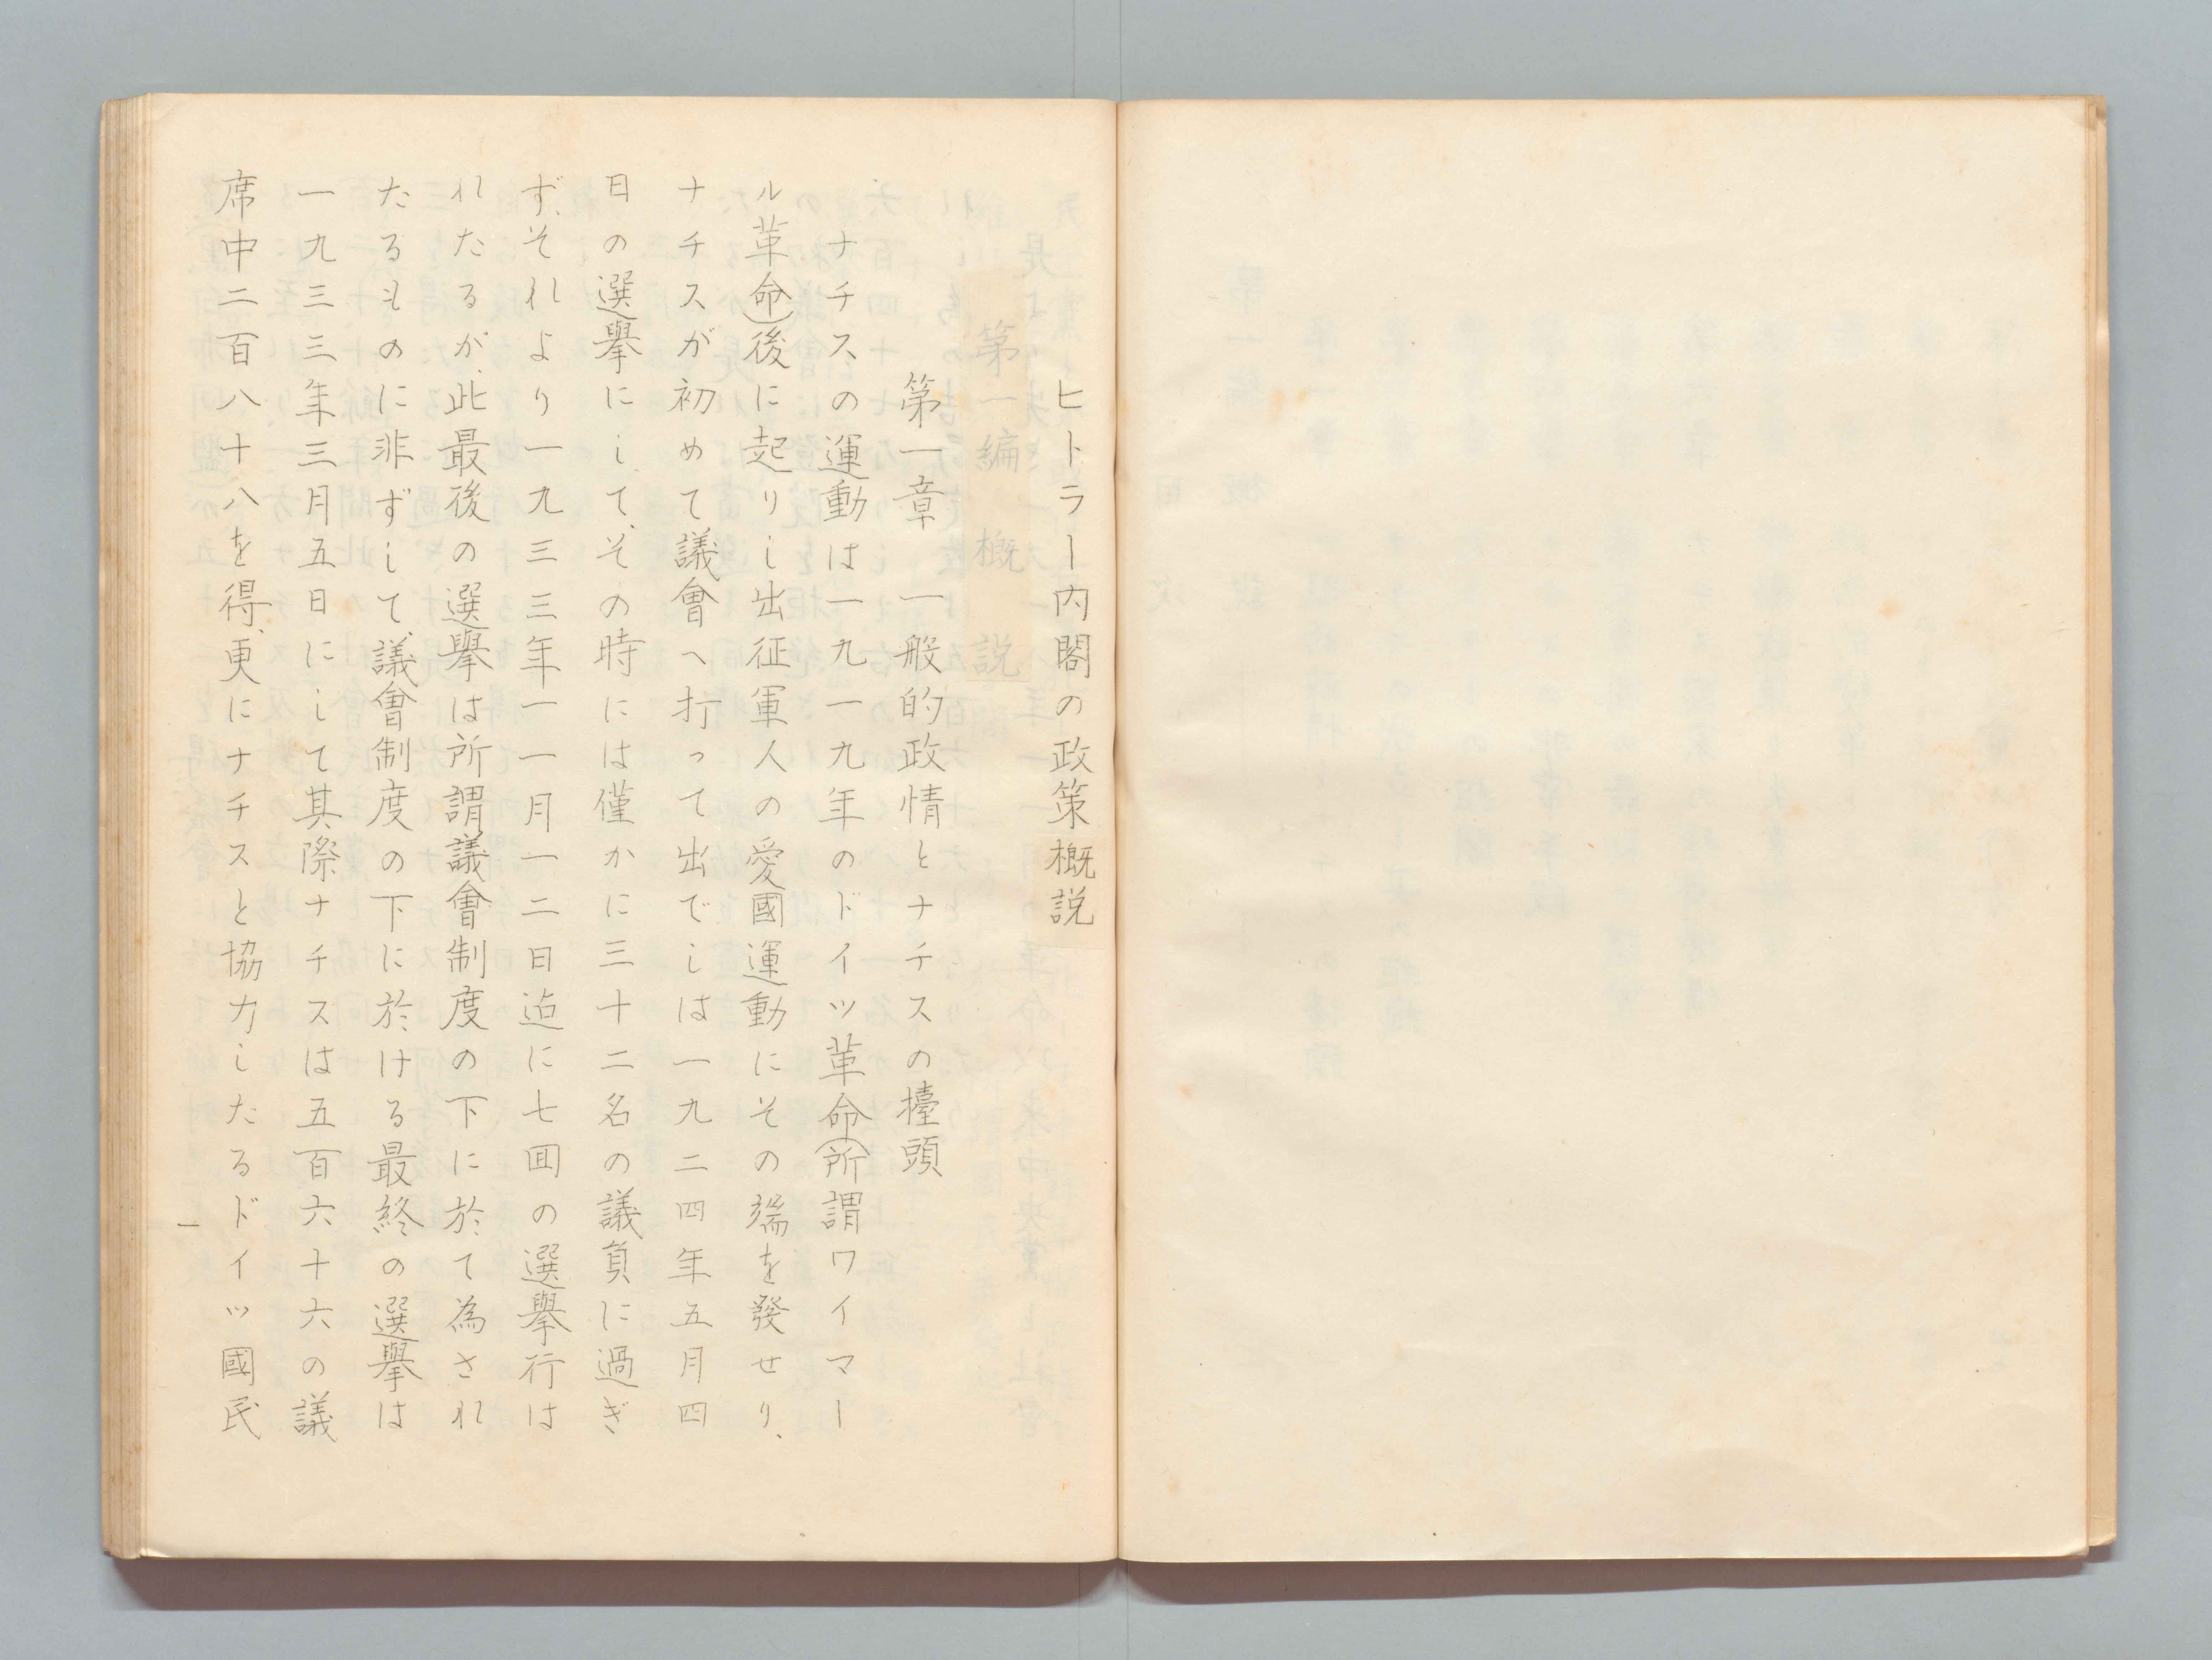 ヒトラー内閣の政策概説
第一編　概　説
第一章　一般的政情とナチスの擡頭
ナチスの運動は一九一九年のドイツ革命(所謂ワイマー
ル革命)後に起りし出征軍人の愛國運動にその端を發せり、
ナチスが初めて議會へ打って出でしは一九二四年五月四
日の選擧にして、その時には僅かに三十二名の議員に過ぎ
ず、それより一九三三年一一月一二日迠に七囬の選擧行は
れたるが、此最後の選擧は所謂議會制度の下に於て為され
たるものに非ずして、議會制度の下に於ける最終の選擧は
一九三三年三月五日にして其際ナチスは五百六十六の議
席中二百八十八を得、更にナチスと協力したるドイツ國民
一